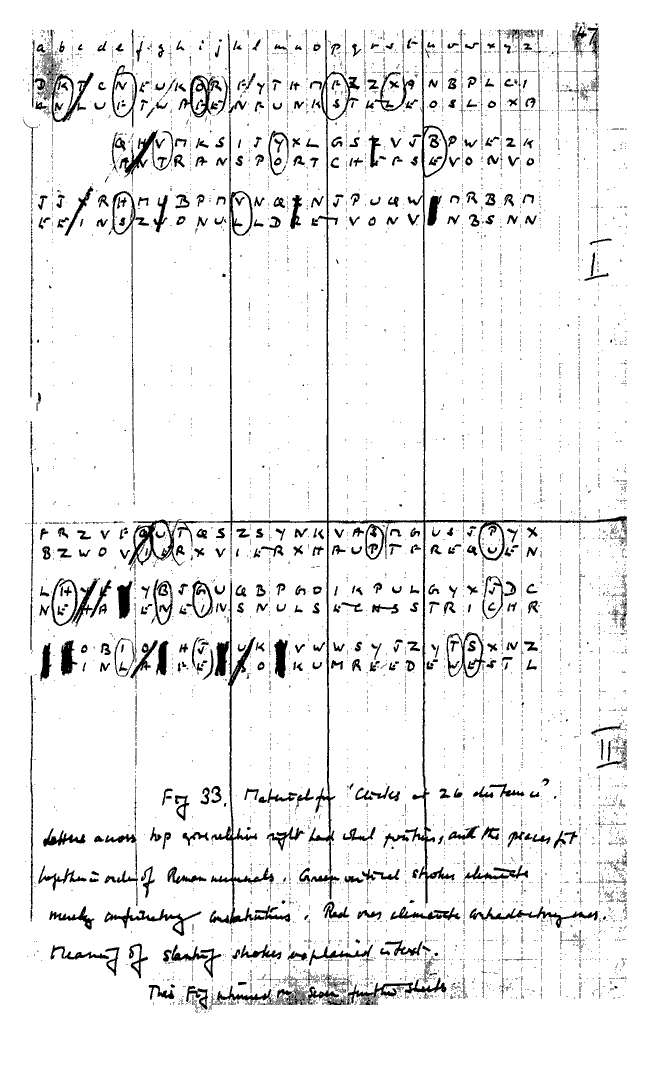 47
a b c d e f g h i j k l m n o p q r s t u v w x y z
D K T C N E U K O R F Y T H M P Z Z X A N B P L C I
E N L U E T W A F E N F U N K S T E L L E O S L O X A
Q H V M K S I J Y X L G S Z V J B P W E Z K
A N T R A N S P O R T C H E F S E V O N V O
J J Y R H M Y B P M V N Q X N J P U Q W M R B R M
E E I N S Z V O N U L L D R E I V O N V N B S N N
I
F R Z V F Q U T Q S Z S Y N K V A S M G U S J P Y X
B Z W O V I E R X V I E R X H A U P T F R E Q U E N
L H Y E Y B J G U Q B P G D I K P U L G Y X J D C
N E H A E N E I N S N U L S E C H S S T R I C H R
O B I O H J U K V W W S Y J Z Y T S X N Z
I N L A F E S O K U M R E E D E W E S T L
II
Fig 33. Material for "Clicks at 26 distance".
Letters across top give relative right hand wheel position, and the pieces fit
together in order of Roman numerals. Green vertical strokes eliminate
merely confirmatory constatations. Red ones eliminate contradictory ones.
Meaning of slanting strokes explained in text.
This Fig continued on seven further sheets